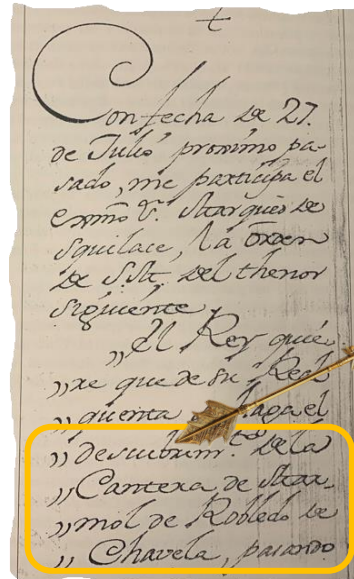 Con fecha de 27.
de Julio proximo pa-
sado, me participa el
exmõ S.r Marques de
Squilace, la orden
de S.M. del thenor
siguiente
„El Rey quie-
„re que de su Real
„quenta haga el
„descubrim.to de la
„Cantera de Mar-
„mol de Robledo de
„Chavela, pasando